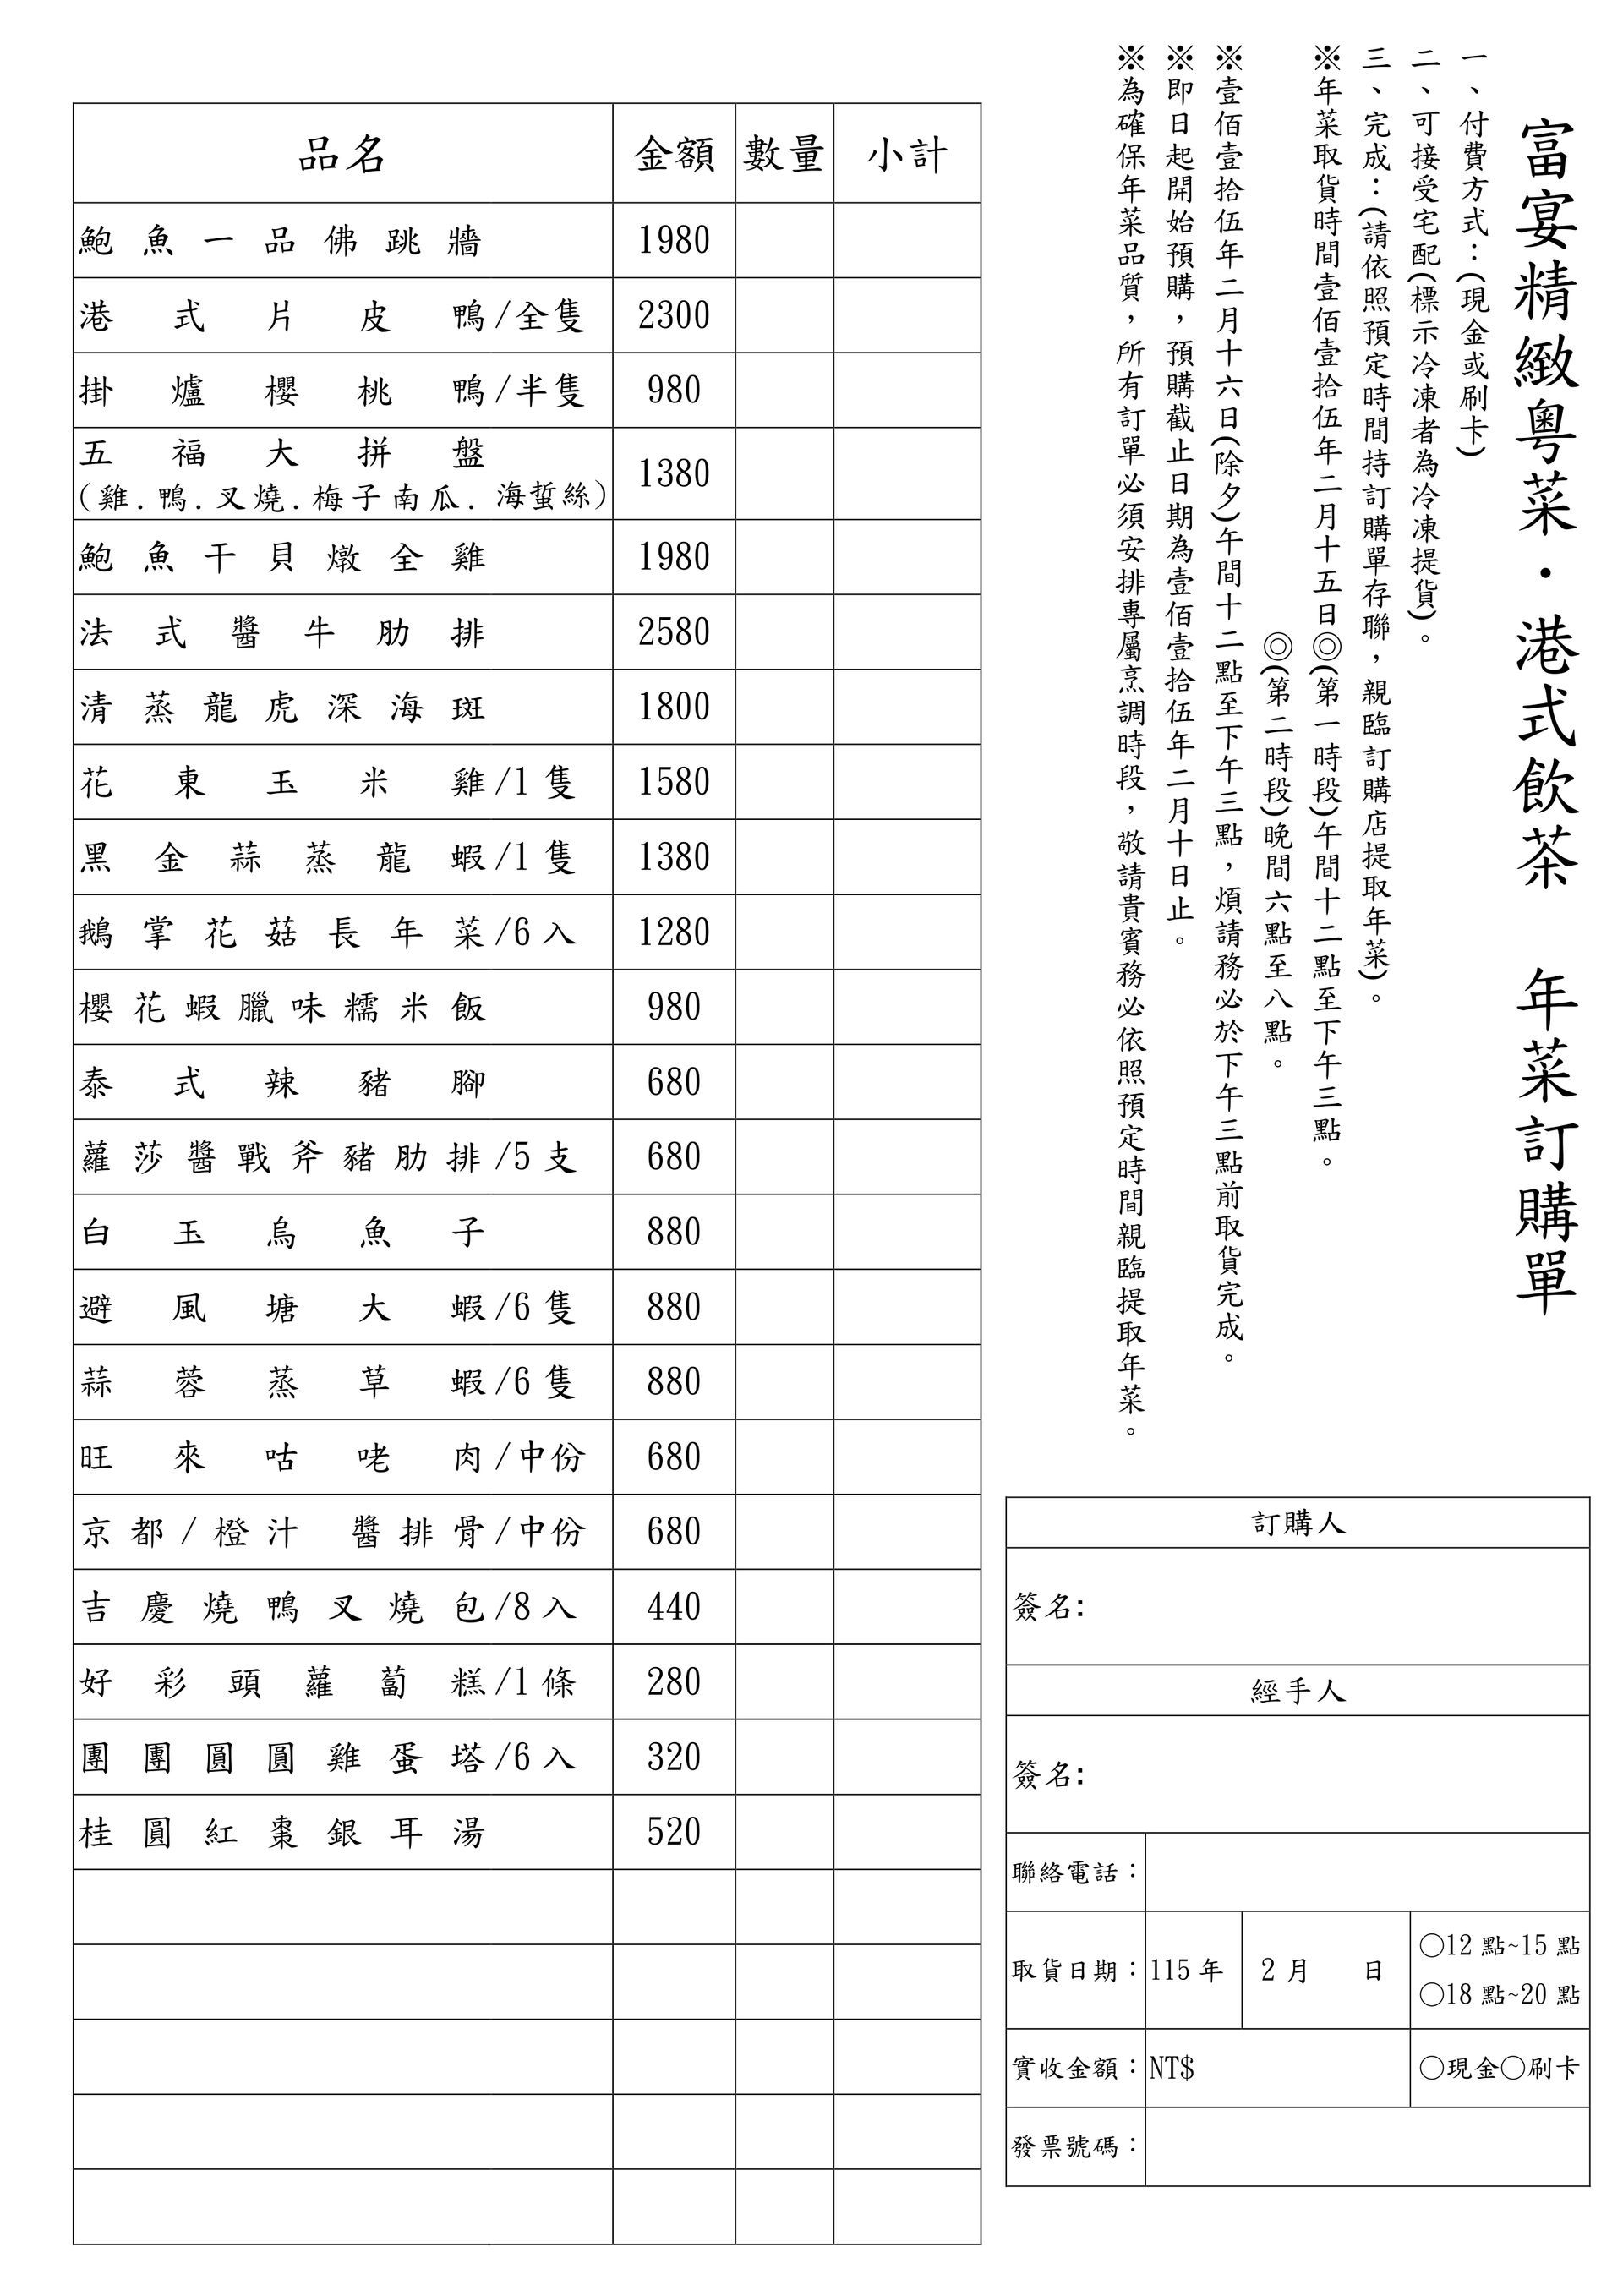 富宴精緻粵菜．港式飲茶　年菜訂購單
一、付費方式：(現金或刷卡)
二、可接受宅配(標示冷凍者為冷凍提貨)。
三、完成：(請依照預定時間持訂購單存聯，親臨訂購店提取年菜)。
※年菜取貨時間壹佰壹拾伍年二月十五日◎(第一時段)午間十二點至下午三點。
◎(第二時段)晚間六點至八點。
※壹佰壹拾伍年二月十六日(除夕)午間十二點至下午三點，煩請務必於下午三點前取貨完成。
※即日起開始預購，預購截止日期為壹佰壹拾伍年二月十日止。
※為確保年菜品質，所有訂單必須安排專屬烹調時段，敬請貴賓務必依照預定時間親臨提取年菜。
品名 金額 數量 小計
鮑魚一品佛跳牆 1980
港式片皮鴨/全隻 2300
掛爐櫻桃鴨/半隻 980
五福大拼盤
(雞.鴨.叉燒.梅子南瓜.海蜇絲) 1380
鮑魚干貝燉全雞 1980
法式醬牛肋排 2580
清蒸龍虎深海斑 1800
花東玉米雞/1隻 1580
黑金蒜蒸龍蝦/1隻 1380
鵝掌花菇長年菜/6入 1280
櫻花蝦臘味糯米飯 980
泰式辣豬腳 680
蘿莎醬戰斧豬肋排/5支 680
白玉烏魚子 880
避風塘大蝦/6隻 880
蒜蓉蒸草蝦/6隻 880
旺來咕咾肉/中份 680
京都/橙汁 醬排骨/中份 680
吉慶燒鴨叉燒包/8入 440
好彩頭蘿蔔糕/1條 280
團團圓圓雞蛋塔/6入 320
桂圓紅棗銀耳湯 520
訂購人
簽名:
經手人
簽名:
聯絡電話：
取貨日期：115年 2月 日 ○12點~15點
○18點~20點
實收金額：NT$ ○現金○刷卡
發票號碼：